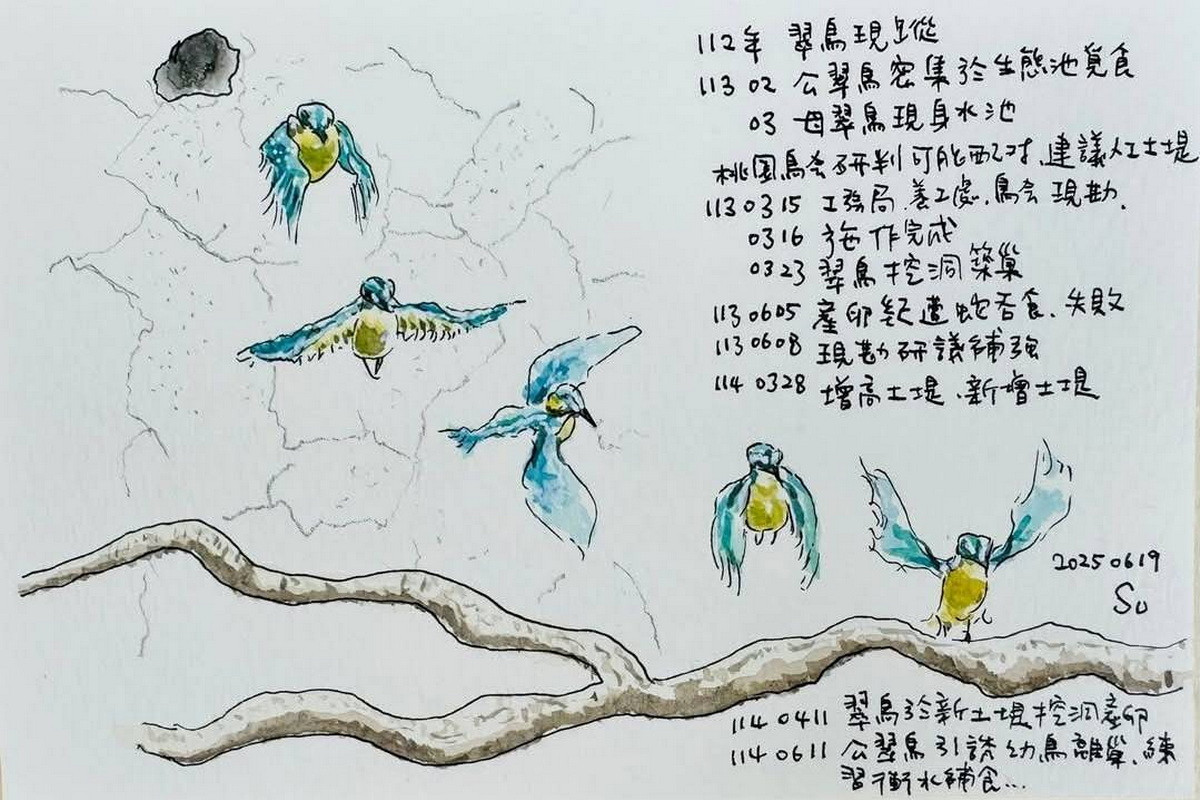 112年 翠鳥現蹤
113 02 公翠鳥密集於生態池覓食
03 母翠鳥現身水池
桃園鳥会研判可能配对、建議人工土堤
113 0315 工務局.養工處.鳥会 現勘.
0316 施作完成
0323 翠鳥挖洞築巢
113 0605 產卵疑遭蛇吞食、失敗
113 0608 現勘研議補強
114 0328 增高土堤、新增土堤
2025 0619
Su
114 0411 翠鳥於新土堤挖洞產卵
114 0611 公翠鳥引誘幼鳥離巢、練
習衝水補食...